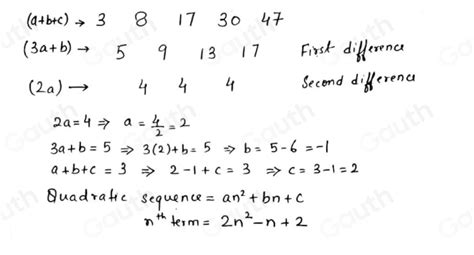 (a+b+c) → 3 8 17 30 47
(3a+b) → 5 9 13 17 First difference
(2a) → 4 4 4 Second difference
2a=4 ⇒ a = 4/2 = 2
3a+b = 5 ⇒ 3(2)+b = 5 ⇒ b = 5-6 = -1
a+b+c = 3 ⇒ 2-1+c = 3 ⇒ c = 3-1 = 2
Quadratic sequence = an²+bn+c
nth term = 2n²-n+2
Gauth